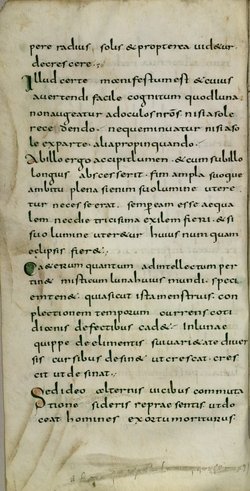 pere radius, solis & propterea videtur
decrescere.
Illud certe manifestum est & cuius
avertendi facile cognitum quod luna
non augeatur ad oculos nr̄os nisi a sole
rece dendo. neque minuatur nisi a so
le ex parte. alia propinquando.
Ab illo ergo accipit lumen. & cum sub illo
longius abscesserit. sim ampla suoque
ambitu plena si enim suo lumine utere
tur necesse erat. semp eam esse aequa
lem. nec die tricisima exilem fieri. & si
suo lumine uteretur huius num quam
eclipsis fier&.
Caeterum quantum ad intellectum per
tin& misticum luna huius mundi speci
em ten&. quia sicut ista menstruis con
plectionem temporum currens coti
dianis defectibus cad&. in lunae
quippe de elimentis suivariae ate diver
sis cursibus defin& ut crescat. cres
cit ut desinat.
Sed ideo alternis vicibus commuta
tione sideris repraesentis ut do
ceat homines ex ortu morituros.